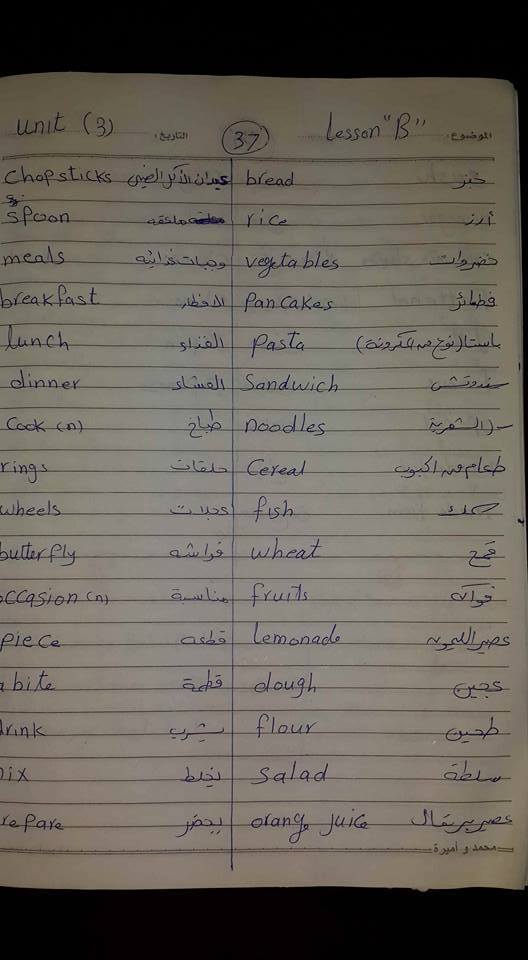 unit (3) التاريخ: 37 Lesson "B" الموضوع:
chopsticks عيدان الأكل الصينى bread خبز
spoon ملعقه rice أرز
meals وجبات غذائيه vegetables خضروات
breakfast الافطار Pancakes فطائر
lunch الغذاء Pasta باستا (نوع من المكرونة)
dinner العشاء Sandwich سندوتش
Cook (n) طباخ noodles الشعرية
rings حلقات Cereal طعام من الحبوب
wheels عجلات fish سمك
butterfly فراشه wheat قمح
occasion (n) مناسبة fruits فواكه
piece قطعه lemonade عصير الليمون
a bite قطمة dough عجين
drink يشرب flour طحين
mix يخلط Salad سلطة
repare يحضر orange juice عصير برتقال
محمد و أميرة